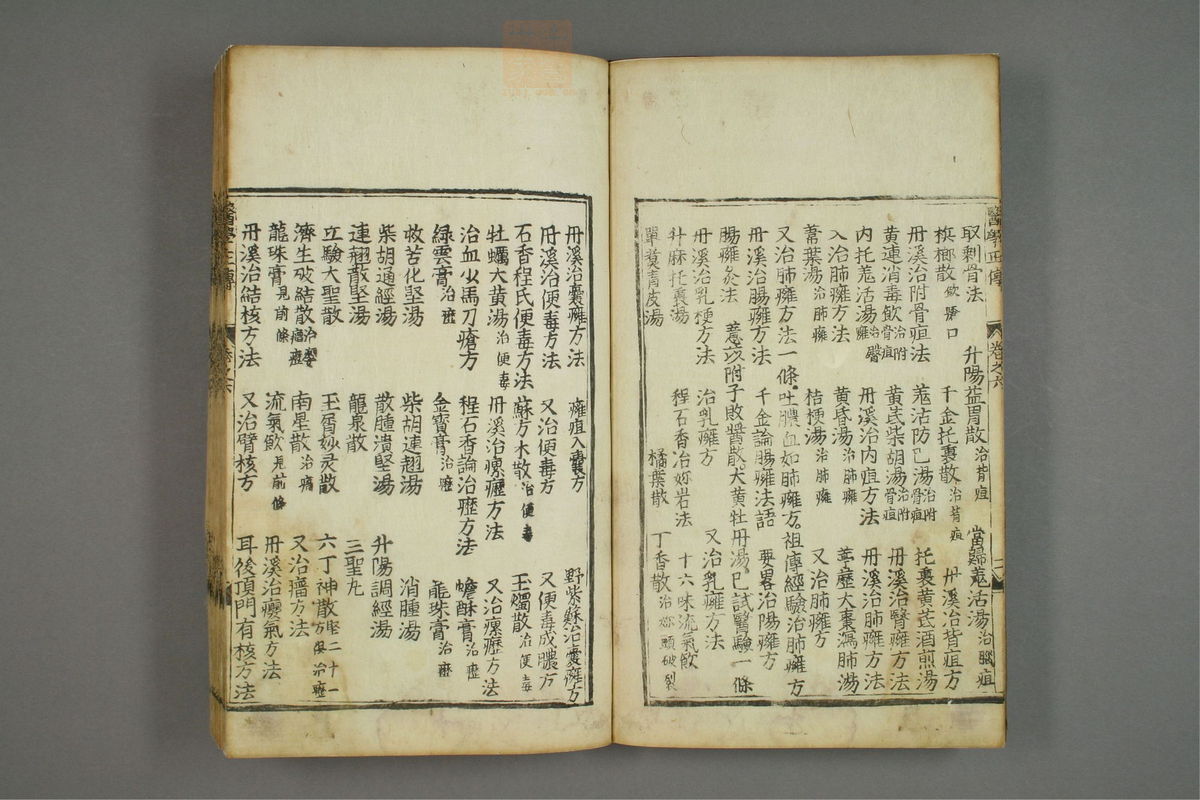 醫學正傳
卷之六
取刺骨法 升陽益胃散治背疽 當歸羗活湯治腦疽
檳榔散歛瘡口 千金托裏散治背疽 丹溪治背疽方
丹溪治附骨疽法 羗活防已湯治附骨疽 托裏黃芪酒煎湯
黃連消毒飮治附骨疽 黃芪柴胡湯治附骨疽 丹溪治腎癰方法
内托羗活湯治臀癰 丹溪治内疽方法 丹溪治肺癰方法
入治肺癰方法 黃昏湯治肺癰 葶藶大棗瀉肺湯
葦葉湯治肺癰 桔梗湯治肺癰 又治肺癰方
又治肺癰方法一條 吐膿血如肺癰方 祖傳經驗治肺癰方
丹溪治腸癰方法 千金論腸癰法語 要畧治腸癰方
腸癰灸法 薏苡附子敗醬散 大黃牡丹湯 已試醫驗一條
丹溪治乳梗方法 治乳癰方 又治乳癰方法
升麻托裏湯 程石香治妳岩法 十六味流氣飮
單煑青皮湯 橘葉散 丁香散治妳頭破裂
丹溪治囊癰方法 癰疽入囊方 野紫蘇治囊癰方
丹溪治便毒方法 又治便毒方 又便毒成膿方
石香程氏便毒方法 蘇方木散治便毒 玉燭散治便毒
牡蠣大黃湯治便毒 丹溪治瘰癧方法 又治瘰癧方法
治血少馬刀瘡方 程石香論治癧方法 蟾酥膏治癧
綠雲膏治癧 金寶膏治癧 龍珠膏治癧
救苦化堅湯 柴胡連翹湯 消腫湯
柴胡通經湯 散腫潰堅湯 升陽調經湯
連翹散堅湯 龍泉散 三聖丸
立驗大聖散 玉屑妙灵散 六丁神散
濟生破結散治癭瘤 南星散治瘤 又治瘤方法
龍珠膏見前條 流氣飮見前條 丹溪治癭氣方法
丹溪治結核方法 又治臂核方 耳後頂門有核方法
醫學正傳
卷之六